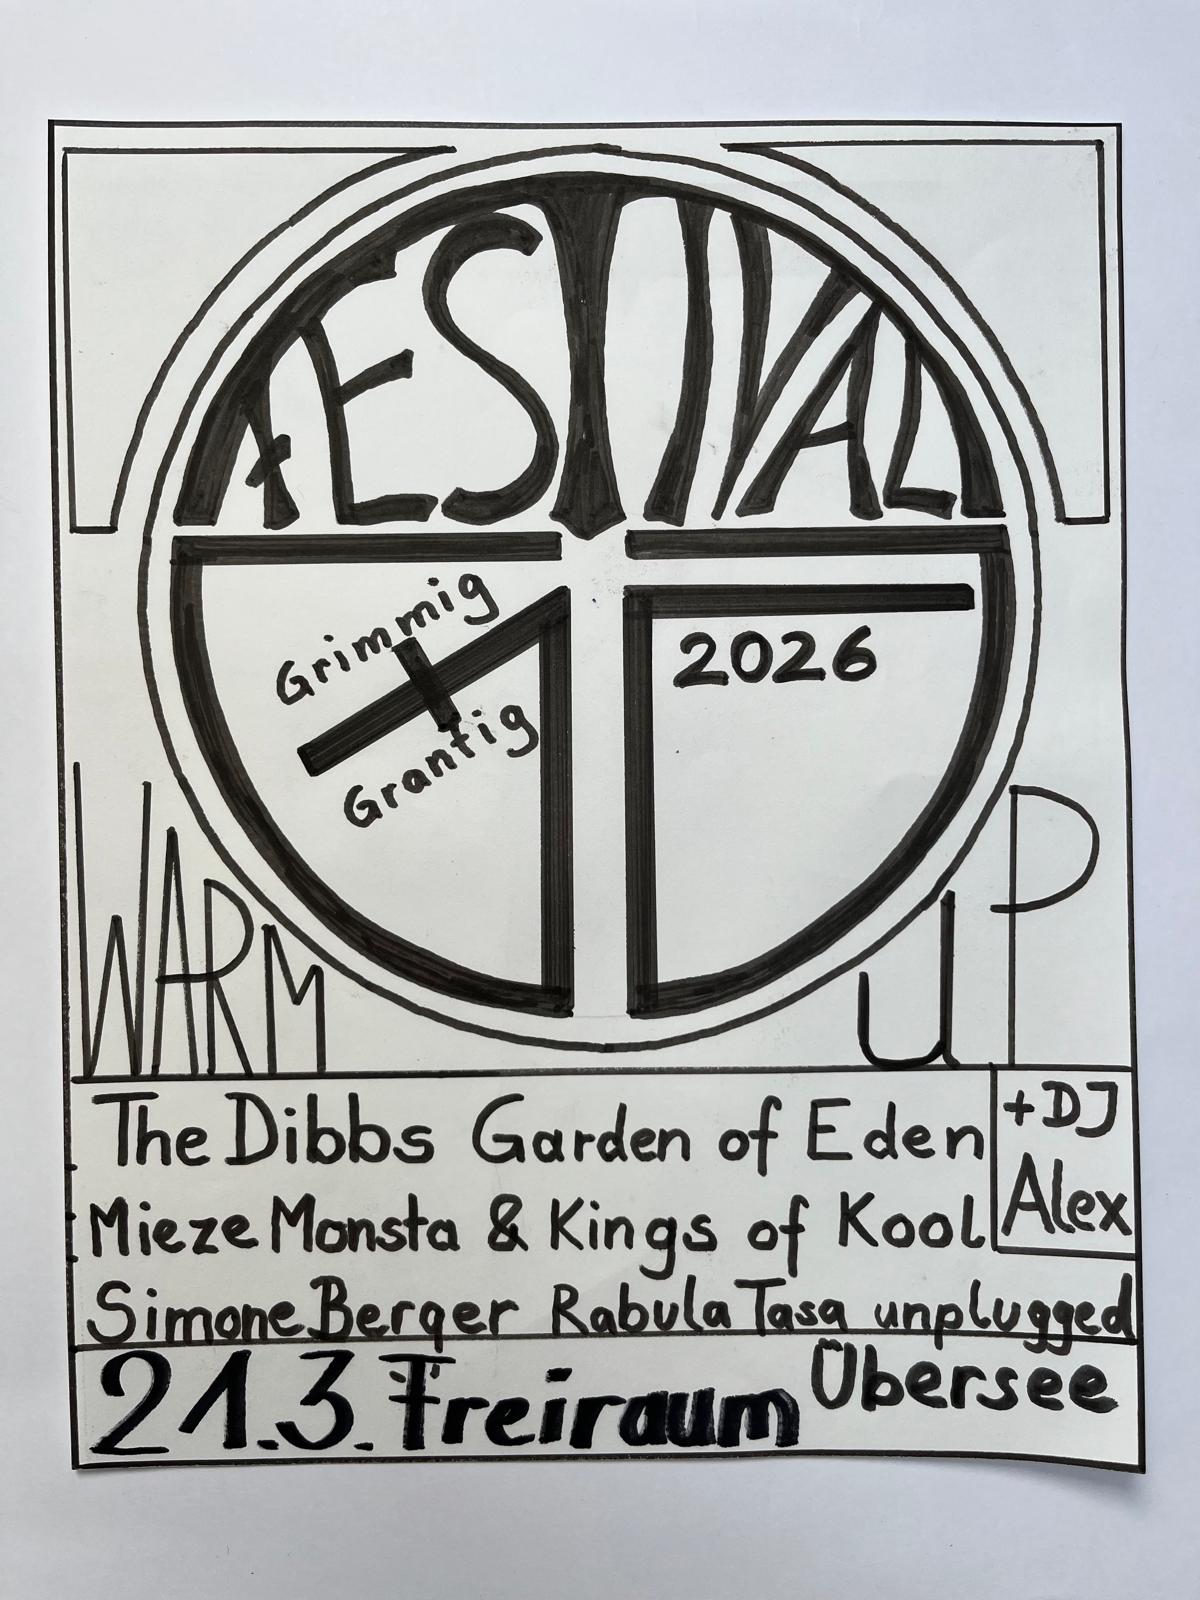 FESTIVAL
Grimmig
+
Grantig
2026
WARM uP
The Dibbs Garden of Eden
Mieze Monsta & Kings of Kool
+DJ
Alex
Simone Berger Rabula Tasa unplugged
21.3. Freiraum Übersee